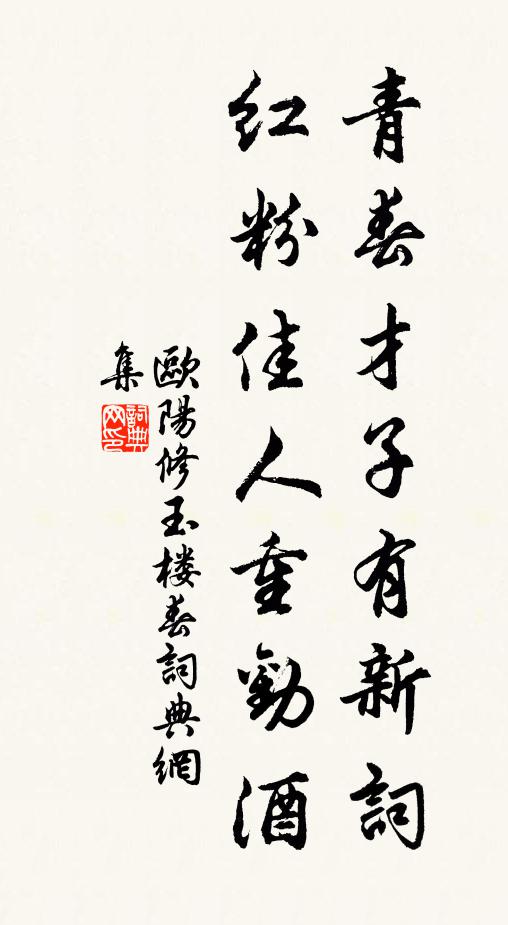 青春才子有新詞
紅粉佳人重勸酒
歐陽修玉楼春詞典網
集
詞典
网印